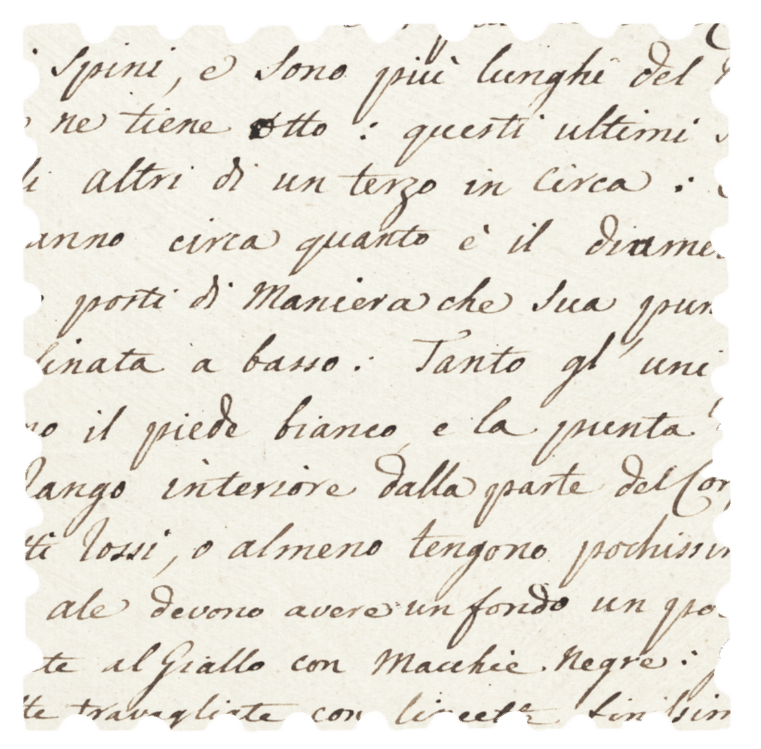 spini, e sono più lunghi del
ne tiene otto : questi ultimi
altri di un terzo in circa :
anno circa quanto è il diame
posti di Maniera che sua pun
linata a basso : Tanto gl' uni
no il piede bianco, e la punta
lango interiore dalla parte del Cor
tti rossi, o almeno tengono pochissim
ale devono avere un fondo un po
te al Giallo con Macchie Negre :
te travagliate con